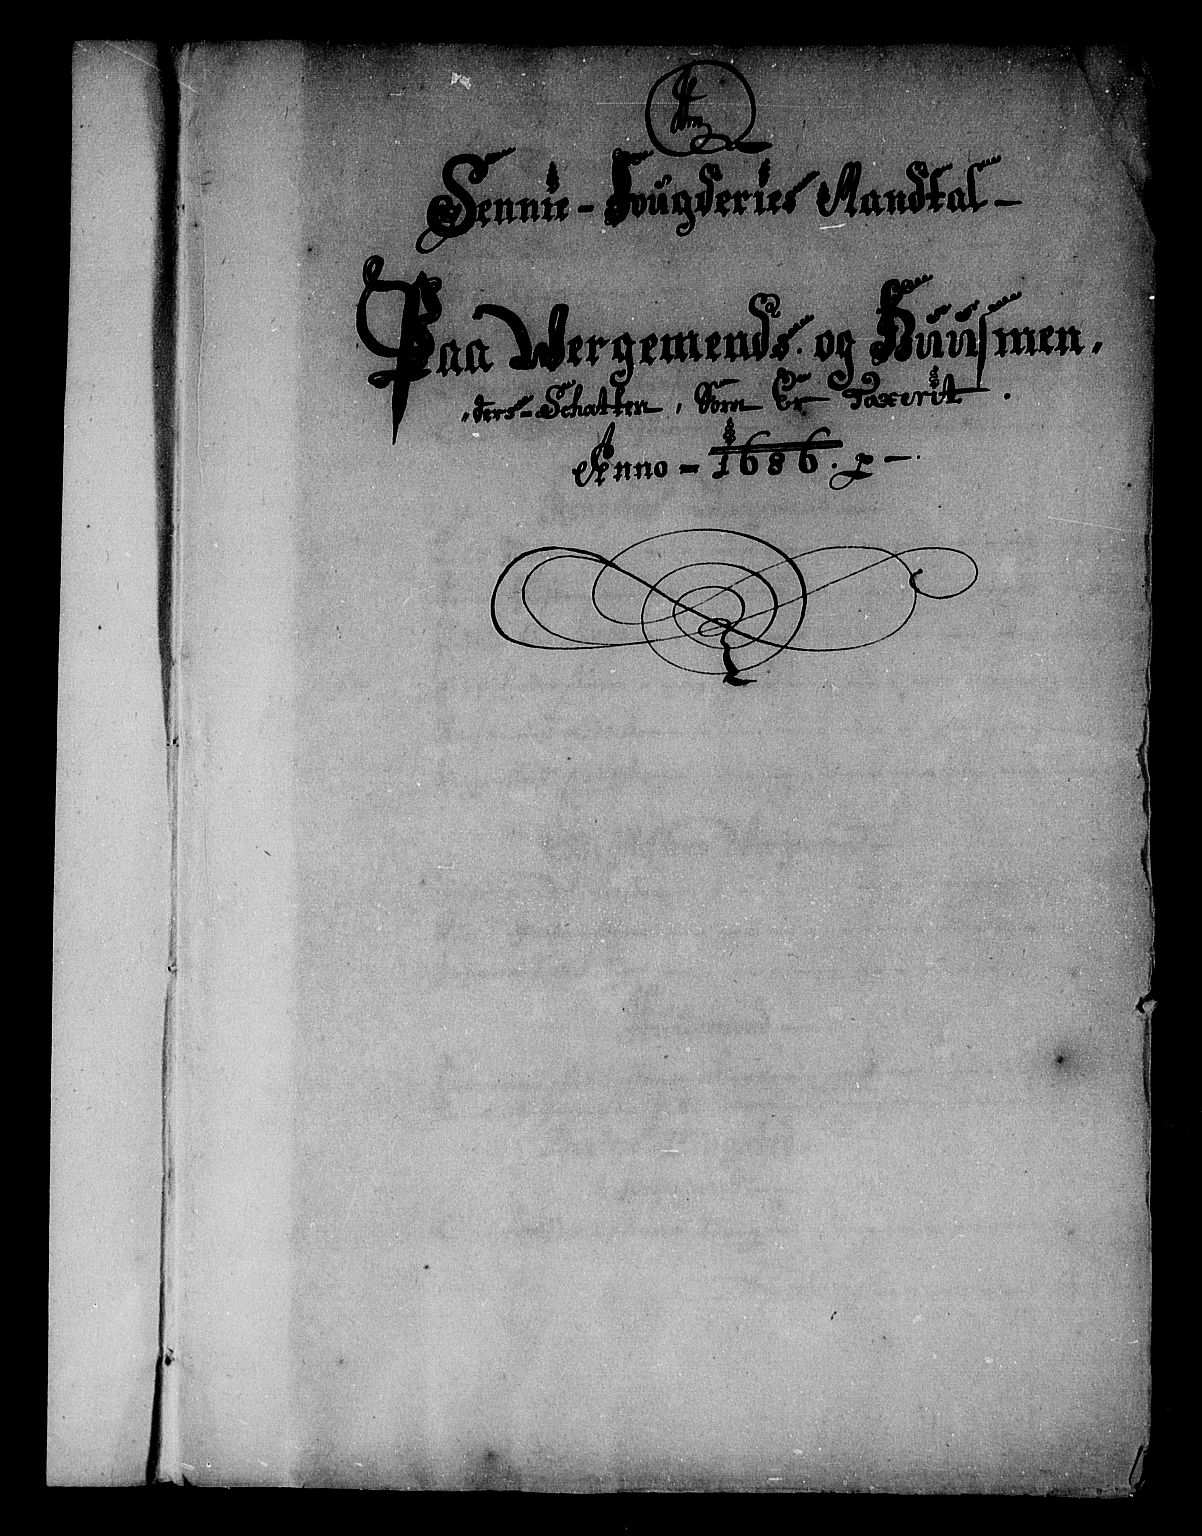 Sennie-Fougderies Mandtal -
Paa Wergemends. og Huusmen,
ders-Schatten, Som Er Taxerit.
Anno - 1686.